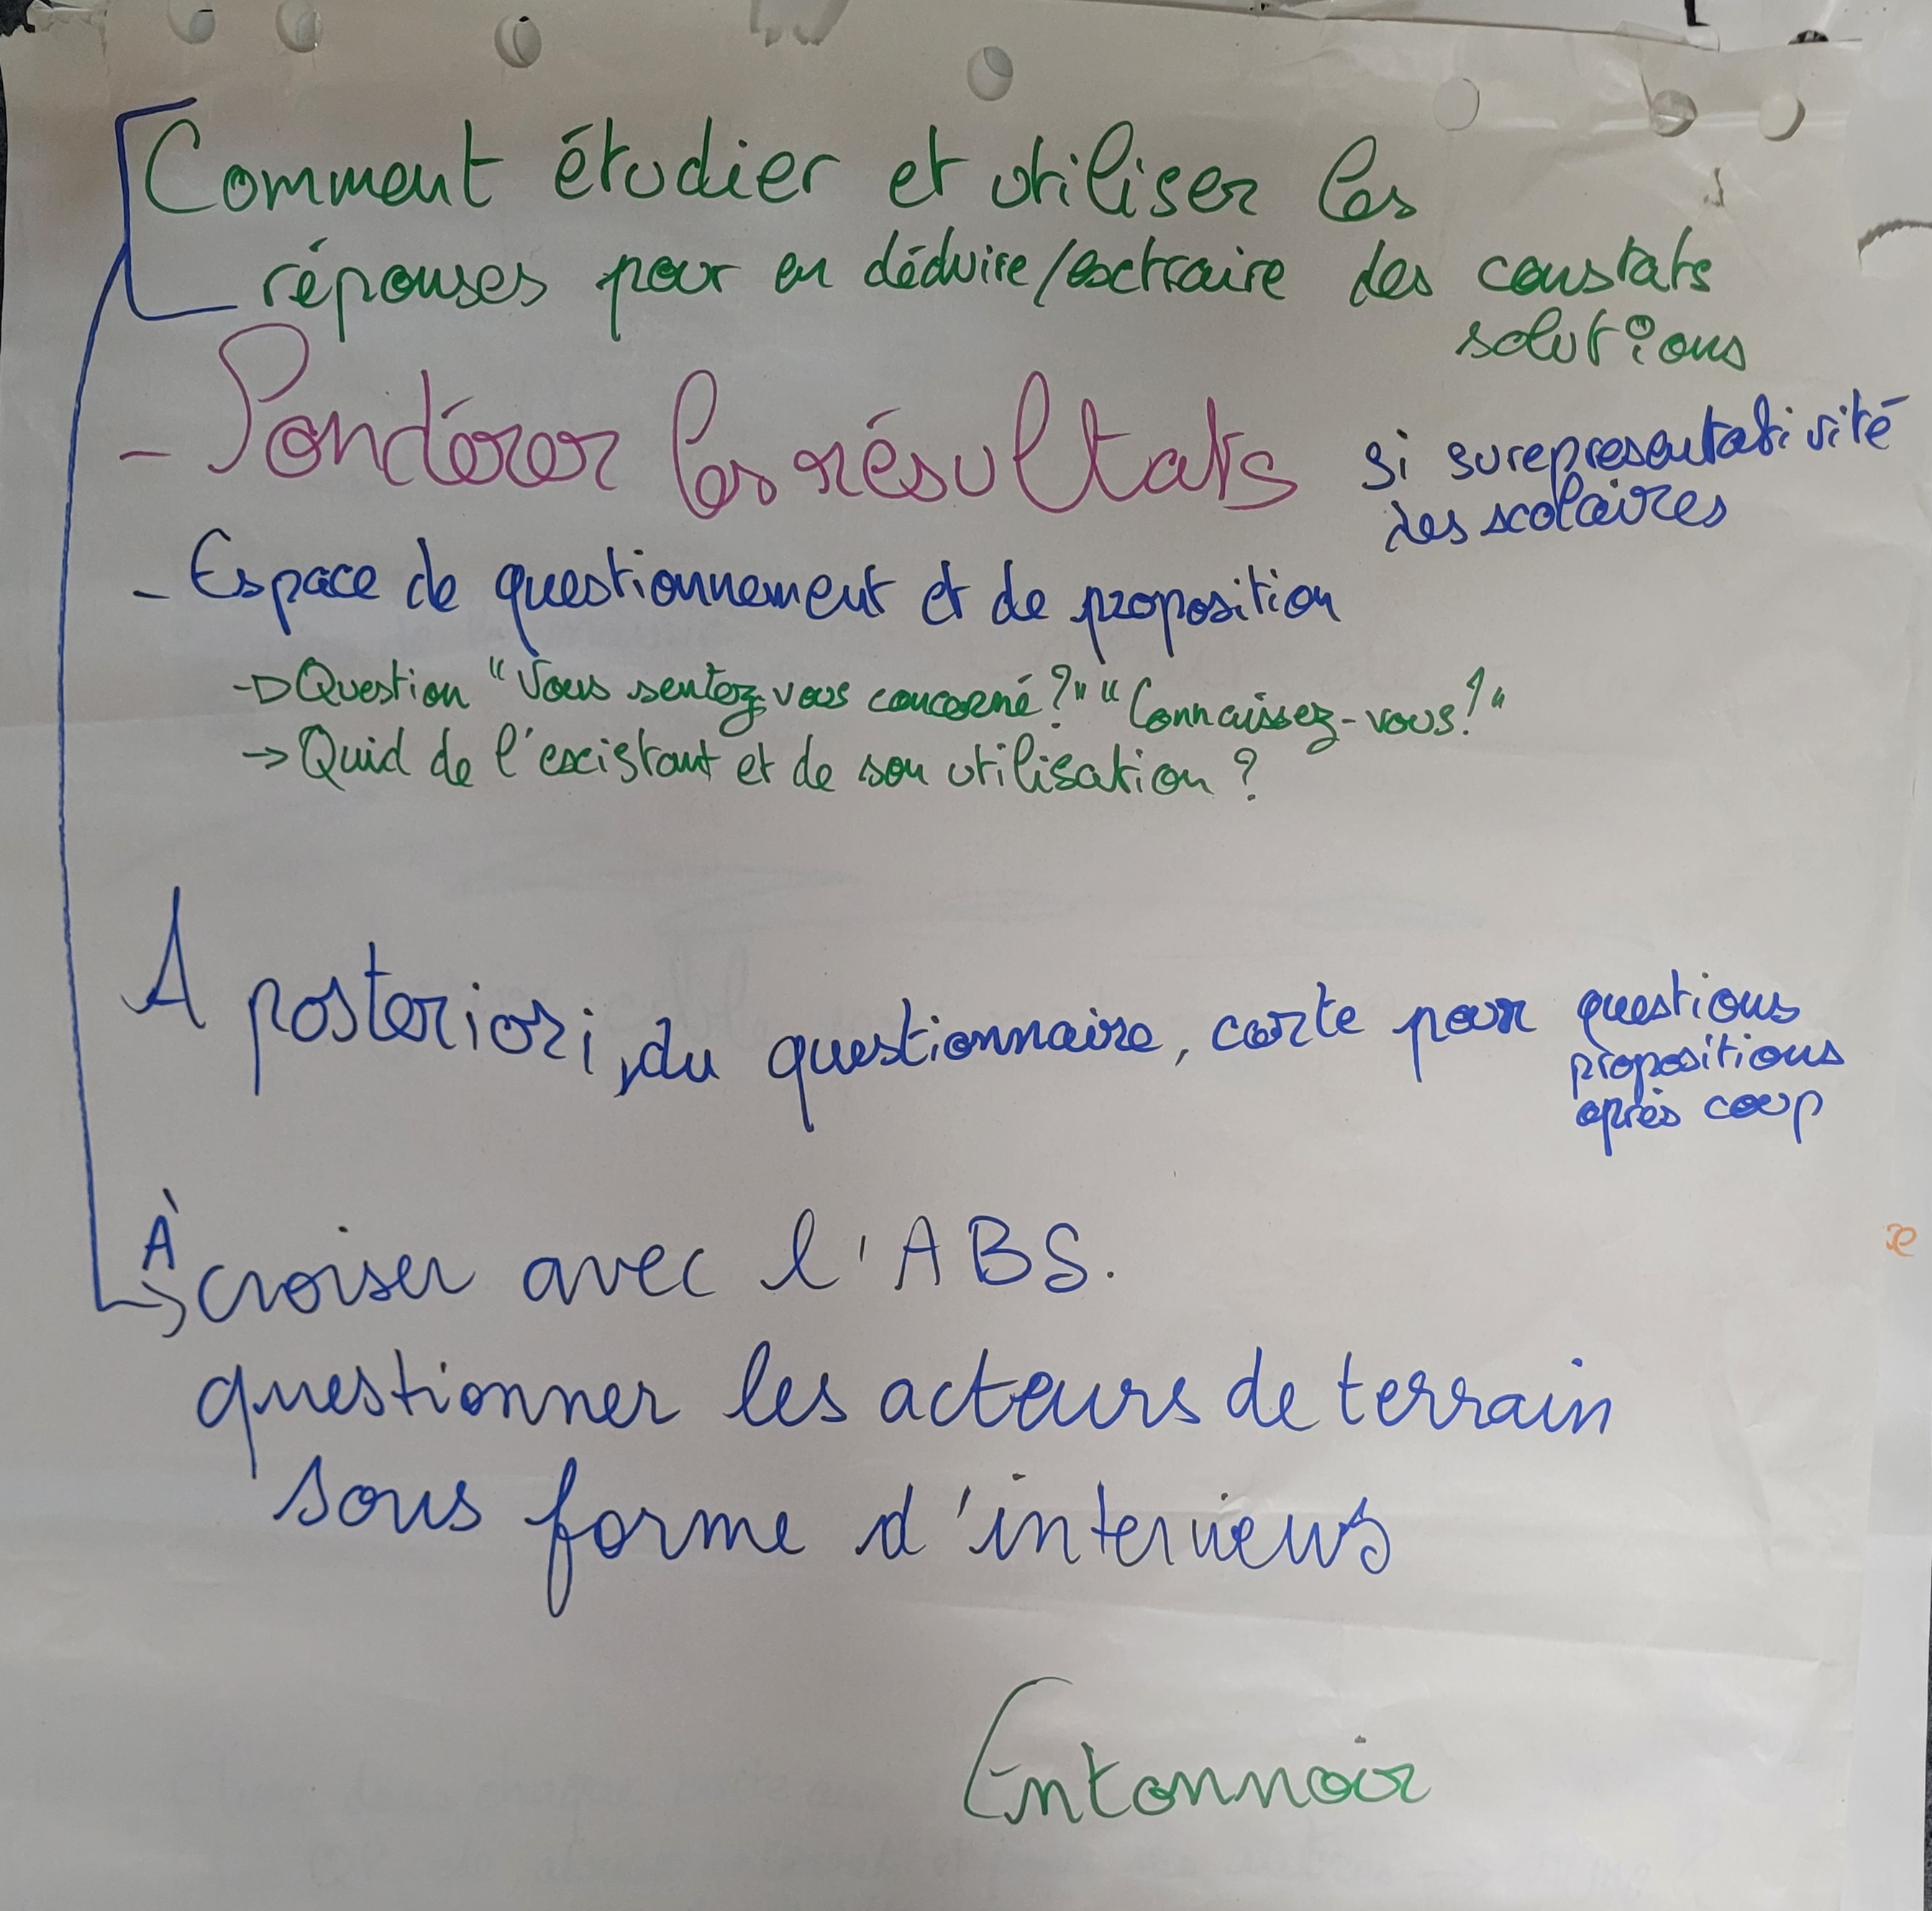 Comment étudier et utiliser les
réponses pour en déduire/extraire des constats
solutions
- Pondérer les résultats si surepresentativité
des scolaires
- Espace de questionnement et de proposition
-> Question "Vous sentez-vous concerné?" "Connaissez-vous!"
-> Quid de l'existant et de son utilisation ?
A posteriori, du questionnaire, carte pour questions
propositions
après coup
À
croiser avec l'ABS.
questionner les acteurs de terrain
sous forme d'interviews
Entonnoir